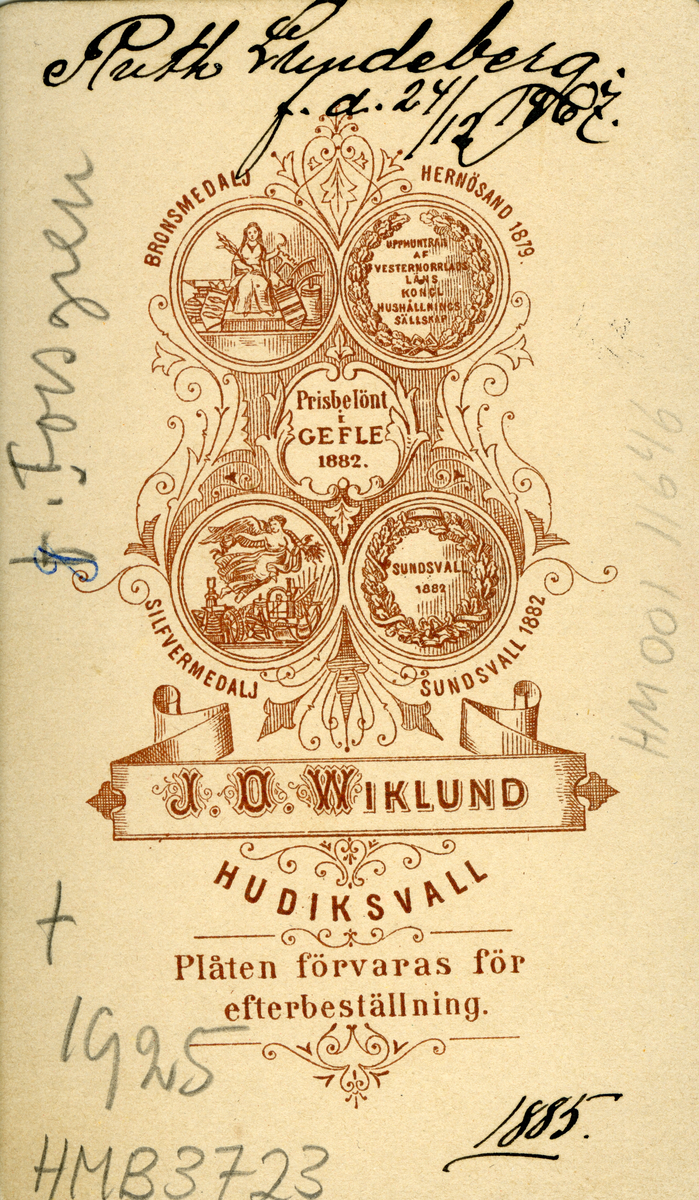 Ruth Lundeberg.
f. d. 24/12 1867.
BRONSMEDALJ
HERNÖSAND 1879.
UPPMUNTRAN
AF
VESTERNORRLADS
LÄNS
KONGL
HUSHÅLLNINGS
SÄLLSKAP
Prisbelönt
i
GEFLE
1882.
SUNDSVALL
1882
SILFVERMEDALJ
SUNDSVALL 1882
J. O. WIKLUND
HUDIKSVALL
Plåten förvaras för
efterbeställning.
g. Forsgren
HM001 11646
+
1925
1885.
HMB3723